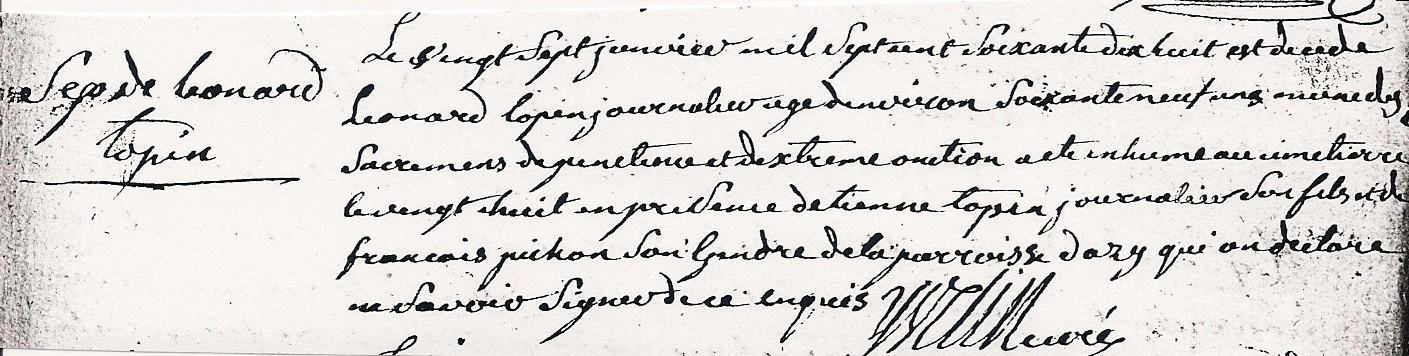 Sep de Leonard
topin
Le vingt Sept janvier mil Sept cent Soixante dix huit est decede
Leonard topin journalier age denviron Soixante neuf ans muni des
Sacremens de penitence et dextreme onction a ete inhume au cimetierre
le vingt huit en presence detienne topin journalier Son fils et de
francois pichon Son Gendre de la parroisse dazy qui on declare
ne Savoir Signer de ce enquis
curé